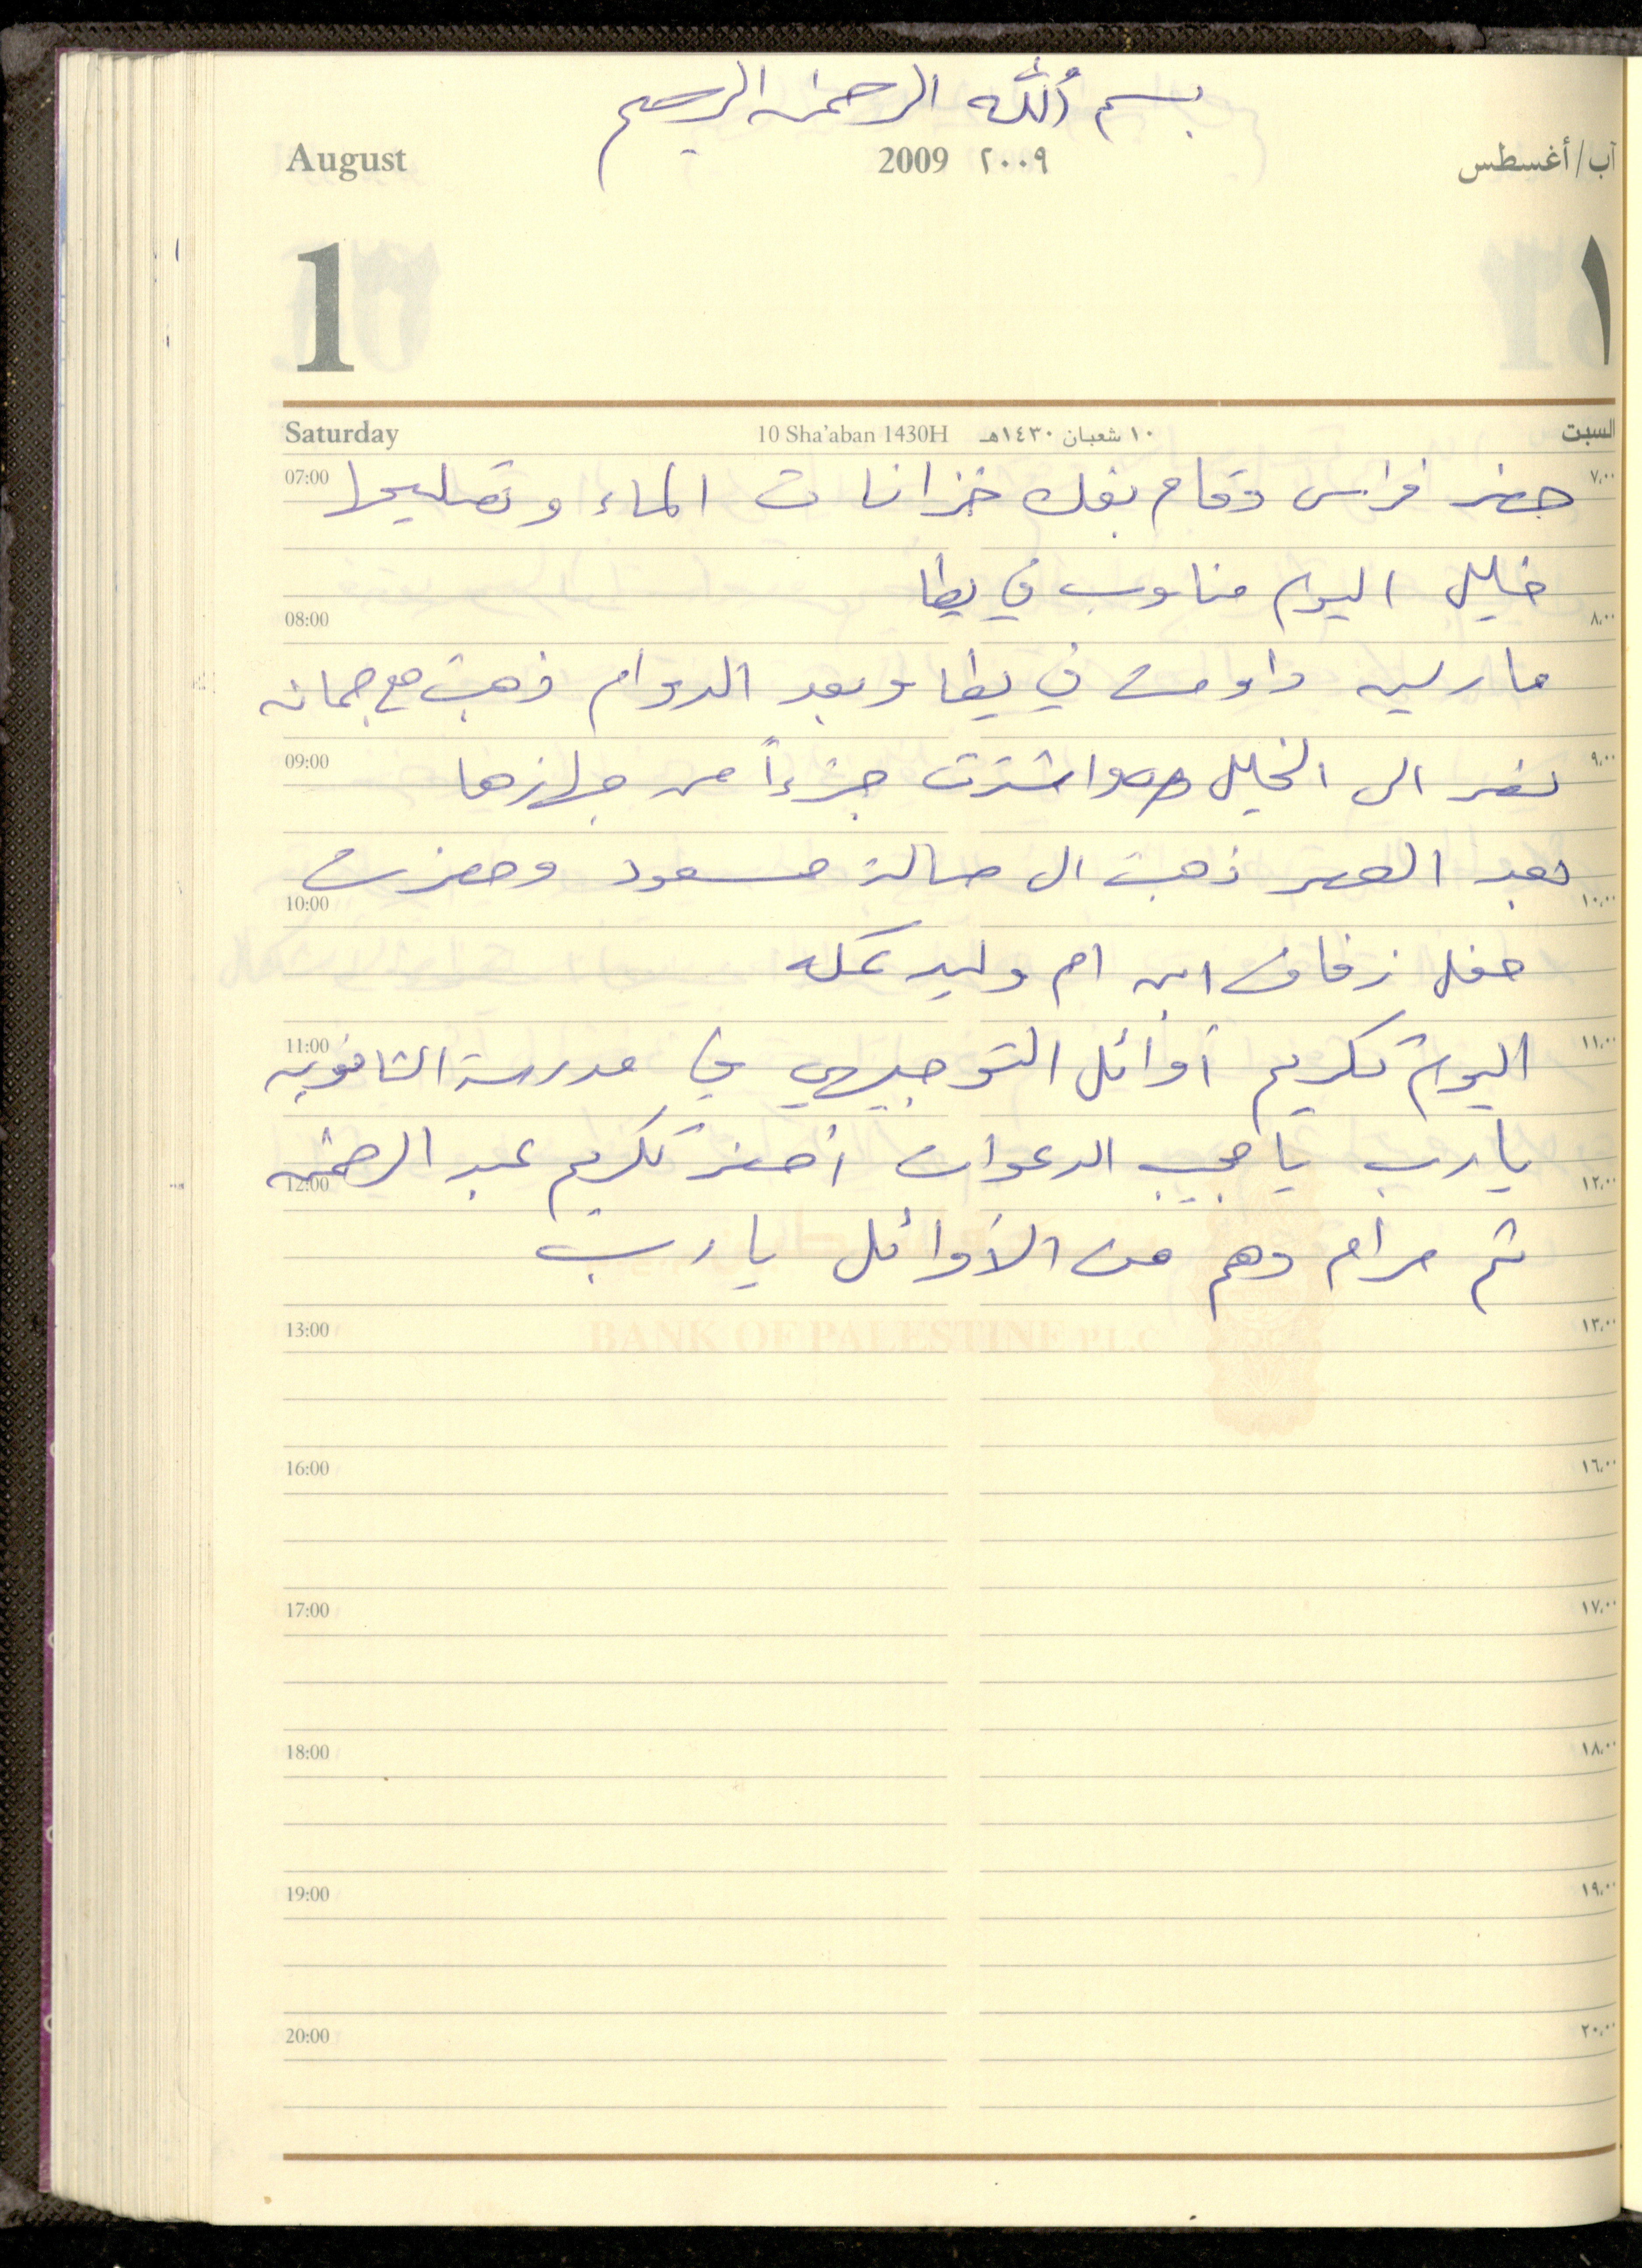 بسم الله الرحمن الرحيم
August 2009 ٢٠٠٩ آب/أغسطس
1 ١
Saturday 10 Sha'aban 1430H ١٠ شعبان ١٤٣٠هـ السبت
07:00 ٧,٠٠
حضر فراس وقام بفك خزانات الماء وتصليحها
خليل اليوم مناوب في يطا
08:00 ٨,٠٠
داومت في يطا وبعد الدوام ذهبت مع جمانه
09:00 ٩,٠٠
الى الخليل واشترت جزءاً من جهازها
بعد العصر ذهبت ال صالة مسعود وحضرت
10:00 ١٠,٠٠
حفل زفاف ابن ام وليد
11:00 ١١,٠٠
اليوم تكريم أوائل التوجيهي في مدرسة الثانويه
يارب يا مجيب الدعوات احضر تكريم عبد الرحمن
12:00 ١٢,٠٠
ثم مرام وهم من الأوائل يا رب
13:00 ١٣,٠٠
BANK OF PALESTINE P.L.C
16:00 ١٦,٠٠
17:00 ١٧,٠٠
18:00 ١٨,٠٠
19:00 ١٩,٠٠
20:00 ٢٠,٠٠